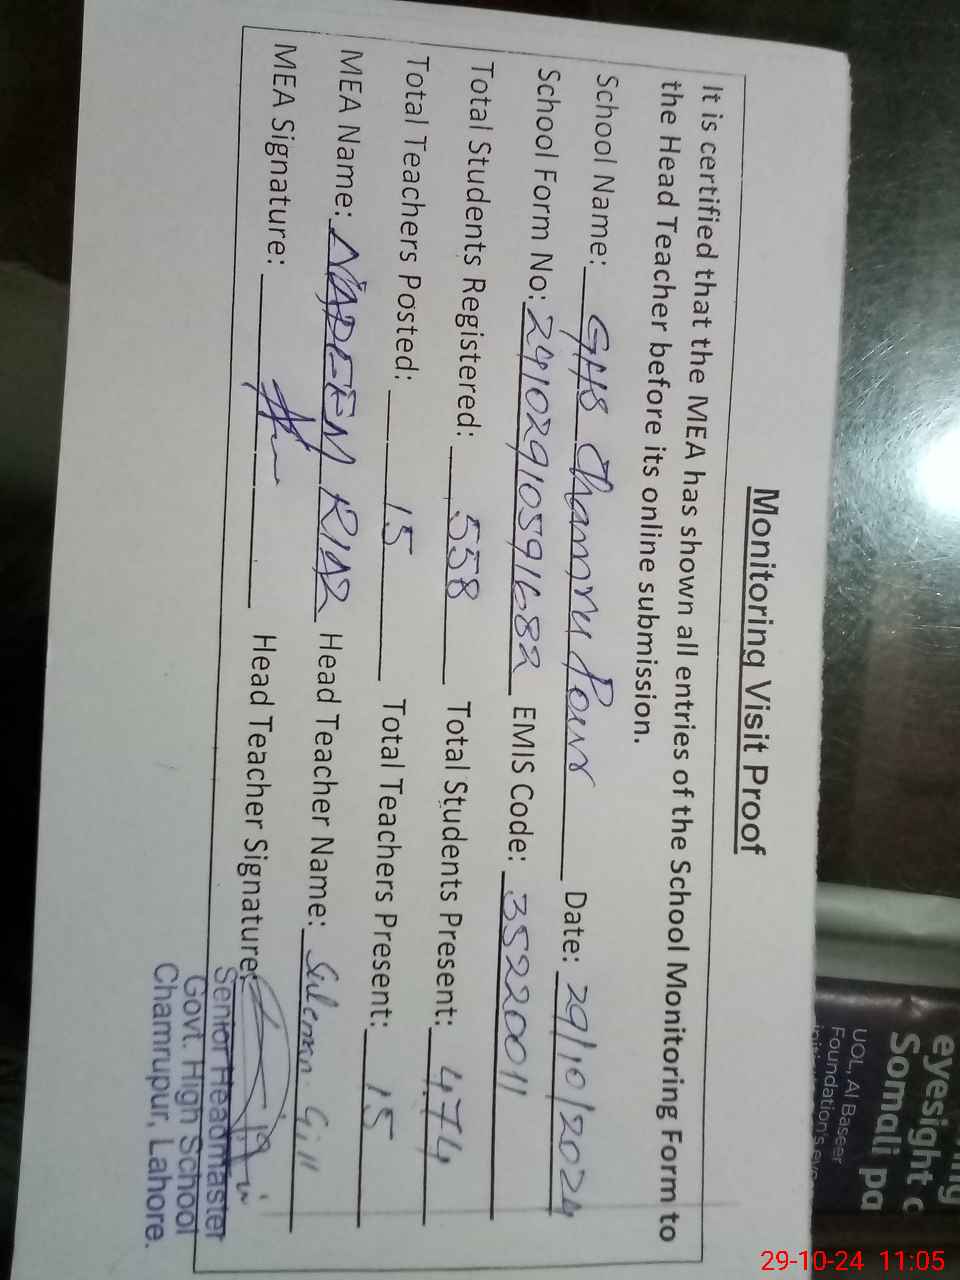 Monitoring Visit Proof
It is certified that the MEA has shown all entries of the School Monitoring Form to
the Head Teacher before its online submission.
School Name: GHS Chamru Pour Date: 29/10/2024
School Form No: 24102910591682 EMIS Code: 35220011
Total Students Registered: 558 Total Students Present: 474
Total Teachers Posted: 15 Total Teachers Present: 15
MEA Name: NADEEM RIAZ Head Teacher Name: Suleman Gill
MEA Signature: Head Teacher Signature:
Senior Headmaster
Govt. High School
Chamrupur, Lahore.
eyesight c
Somali pa
UOL, Al Baseer
Foundation's eye
29-10-24 11:05